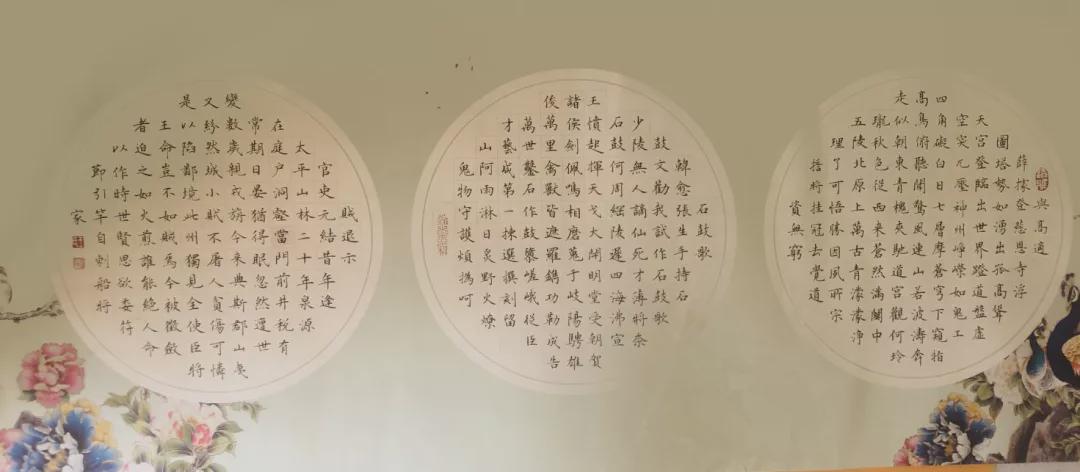 與高適
薛據登慈恩寺浮
圖塔勢如湧出孤高聳
天宮登臨出世界蹬道盤虛
空突兀壓神州崢嶸如鬼工
四角礙白日七層摩蒼穹下窺指
高鳥俯聽聞驚風連山若波濤奔
走似朝東青槐夾馳道宮觀何玲
瓏秋色從西來蒼然滿關中
五陵北原上萬古青濛濛淨
理了可悟勝因夙所宗
誓將挂冠去覺道
資無窮
石鼓歌
韓愈張生手持石
鼓文勸我試作石鼓歌
少陵無人謫仙死才薄將奈
石鼓何周綱陵遲四海沸宣
王憤起揮天戈大開明堂受朝賀
諸侯劍佩鳴相磨蒐于岐陽騁雄
俊萬里禽獸皆遮羅鐫功勒成告
萬世鑿石作鼓隳嵯峨從臣
才藝咸第一揀選撰刻留
山阿雨淋日炙野火燎
鬼物守護煩撝呵
賊退示
官吏元結昔年逢
太平山林二十年泉源
在庭戶洞壑當門前井稅有
常期日晏猶得眠忽然遭世
變數歲親戎旃今來典斯郡山夷
又紛然城小賊不屠人貧傷可憐
是以陷鄰境此州獨見全使臣將
王命豈不如賊焉今被徵斂
者迫之如火煎誰能絕人命
以作時世賢思欲委符
節引竿自刺船將
家